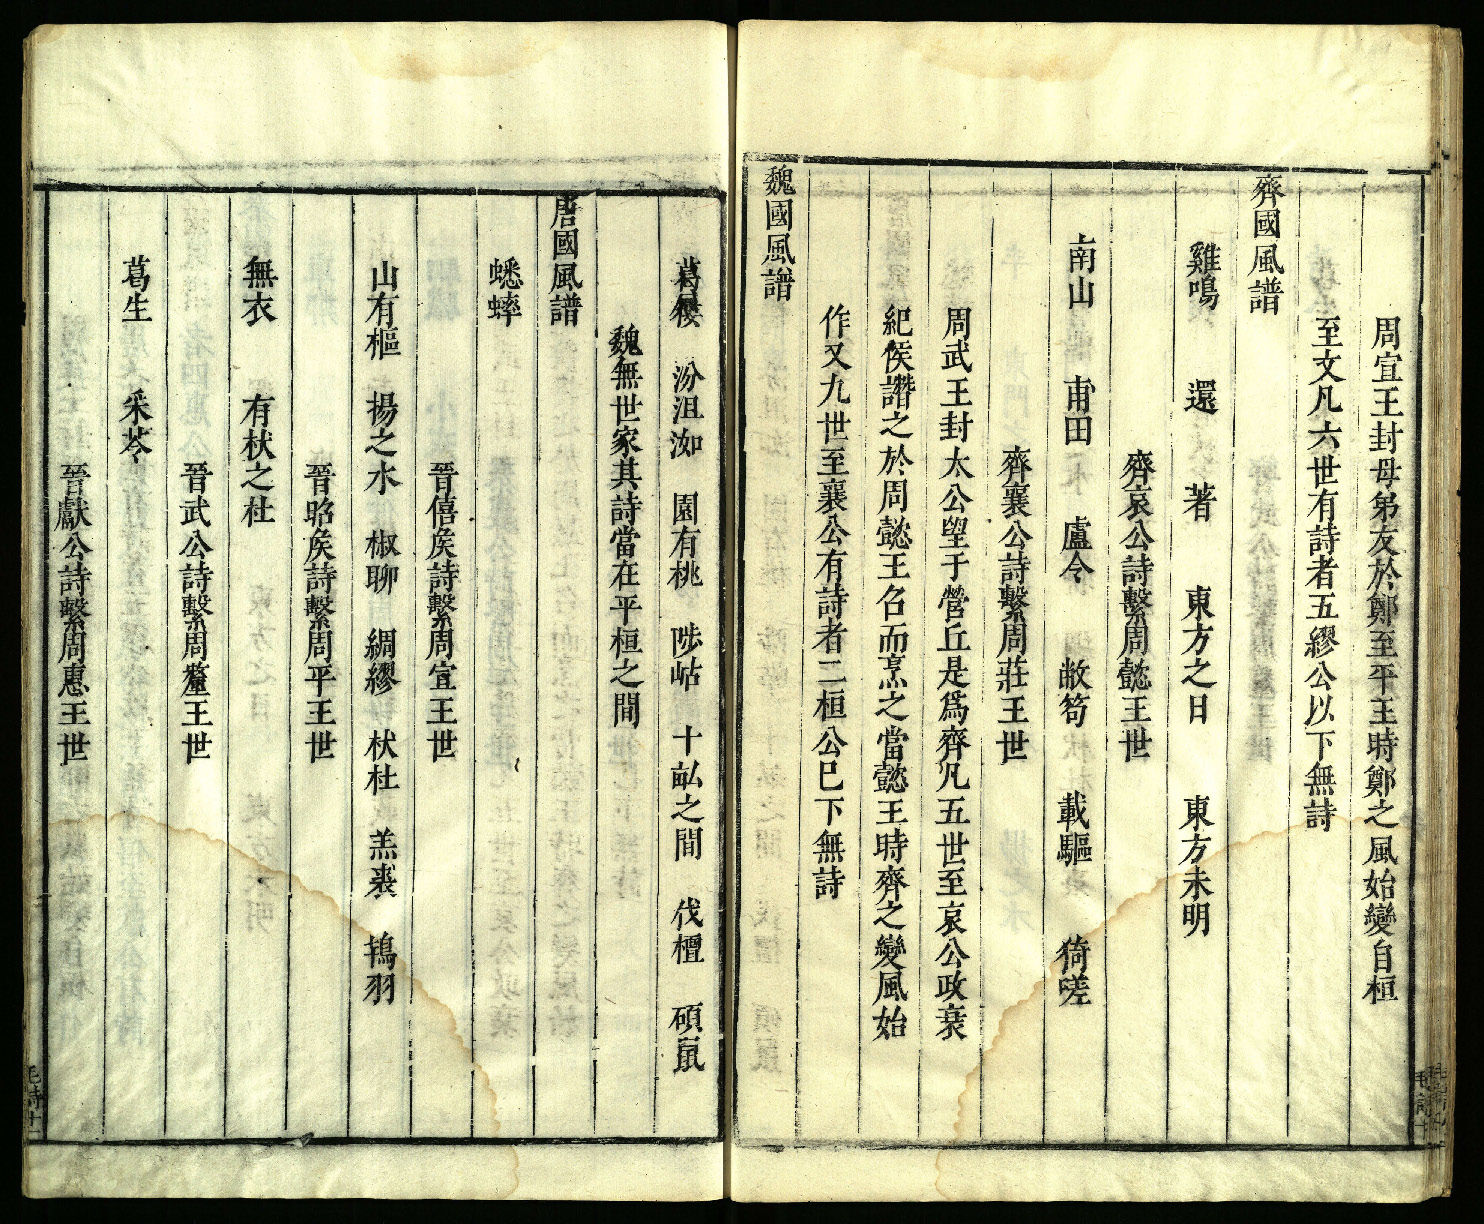 周宣王封母弟友於鄭至平王時鄭之風始變自桓
至文凡六世有詩者五繆公以下無詩
齊國風譜
雞鳴 還 著 東方之日 東方未明
齊哀公詩繫周懿王世
南山 甫田 盧令 敝笱 載驅 猗嗟
齊襄公詩繫周莊王世
周武王封太公望于營丘是爲齊凡五世至哀公政衰
紀侯譖之於周懿王召而烹之當懿王時齊之變風始
作又九世至襄公有詩者二桓公已下無詩
魏國風譜
葛屨 汾沮洳 園有桃 陟岵 十畝之間 伐檀 碩鼠
魏無世家其詩當在平桓之間
唐國風譜
蟋蟀
晉僖矦詩繫周宣王世
山有樞 揚之水 椒聊 綢繆 杕杜 羔裘 鴇羽
晉昭矦詩繫周平王世
無衣 有杕之杜
晉武公詩繫周釐王世
葛生 采苓
晉獻公詩繫周惠王世
毛詩十